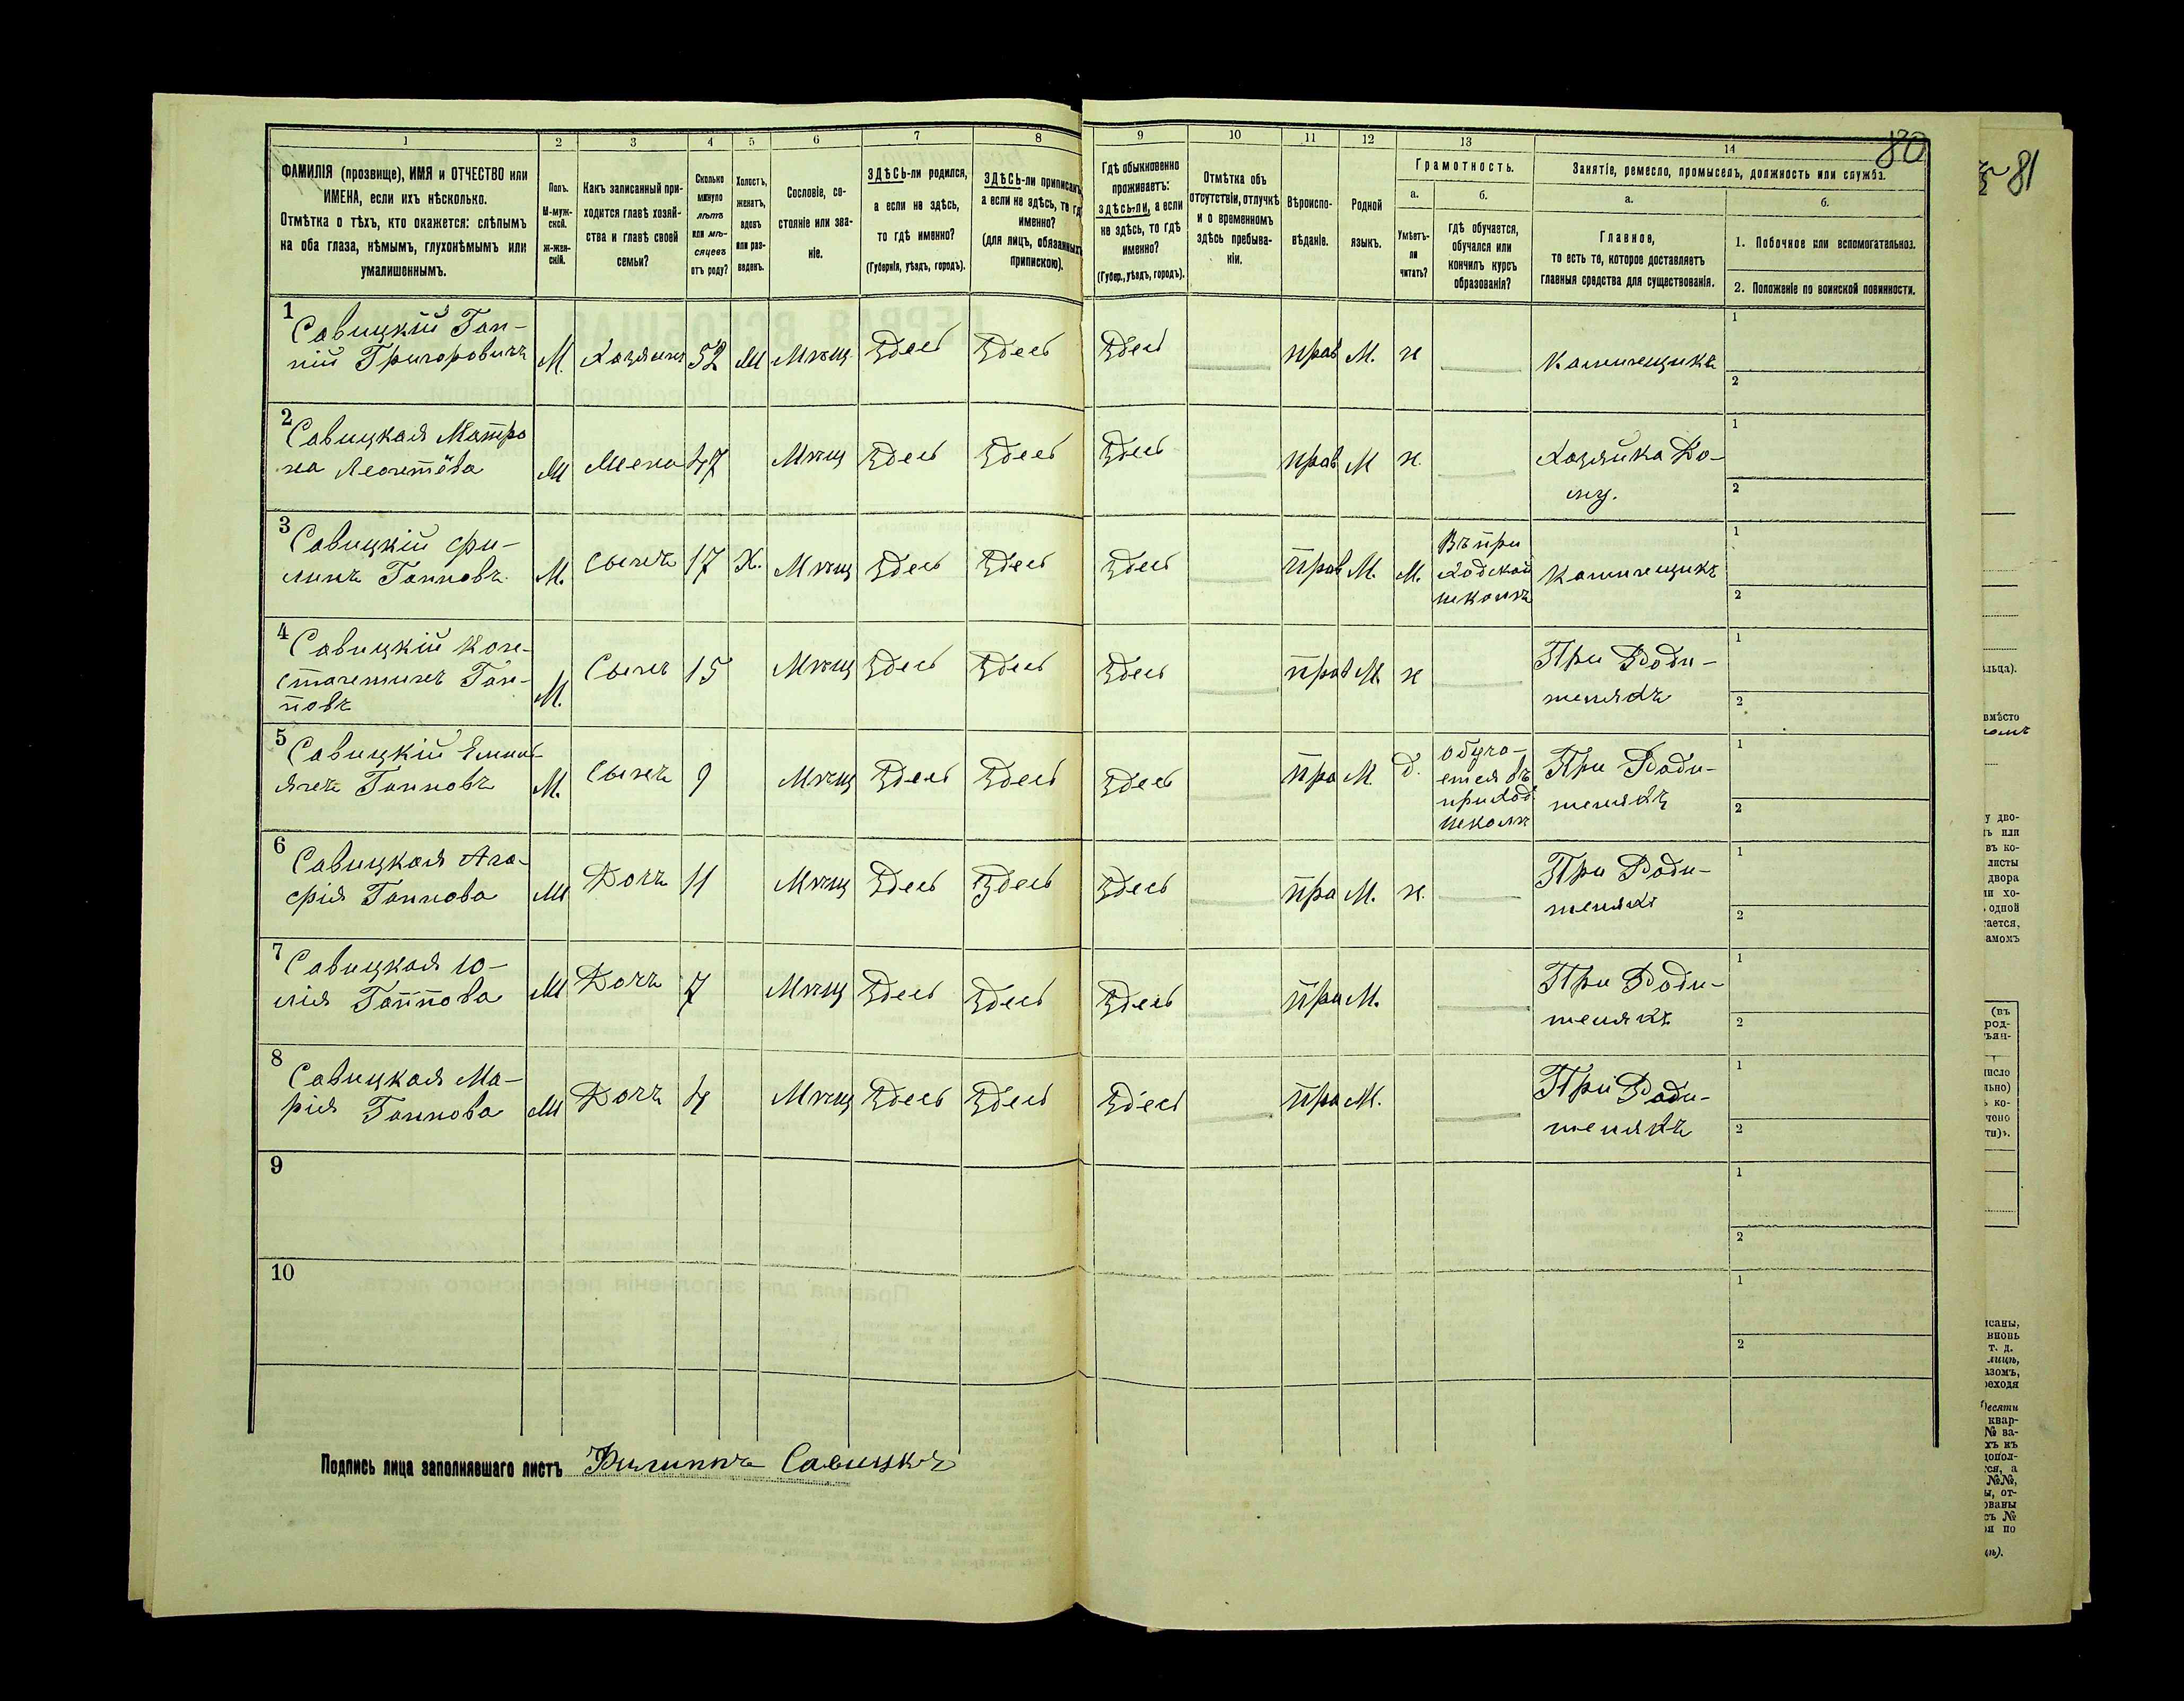 80
81
1 2 3 4 5 6 7 8 9 10 11 12 13 14
ФАМИЛІЯ (прозвище), ИМЯ и ОТЧЕСТВО или
ИМЕНА, если ихъ нѣсколько.
Отмѣтка о тѣхъ, кто окажется: слѣпымъ
на оба глаза, нѣмымъ, глухонѣмымъ или
умалишеннымъ.
Полъ.
М-муж-
ской.
ж-жен-
скій.
Какъ записанный при-
ходится главѣ хозяй-
ства и главѣ своей
семьи?
Сколько
минуло
лѣтъ
или мѣ-
сяцевъ
отъ роду?
Холостъ,
женатъ,
вдовъ
или раз-
веденъ.
Сословіе, со-
стояніе или зва-
ніе.
ЗДѢСЬ-ли родился,
а если не здѣсь,
то гдѣ именно?
(Губернія, уѣздъ, городъ).
ЗДѢСЬ-ли приписанъ,
а если не здѣсь, то гдѣ
именно?
(для лицъ, обязанныхъ
припискою).
Гдѣ обыкновенно
проживаетъ:
здѣсь-ли, а если
не здѣсь, то гдѣ
именно?
(Губер., уѣздъ, городъ).
Отмѣтка объ
отсутствіи, отлучкѣ
и о временномъ
здѣсь пребыва-
ніи.
Вѣроиспо-
вѣданіе.
Родной
языкъ.
Грамотность.
а.
Умѣетъ-
ли
читать?
б.
гдѣ обучается,
обучался или
кончилъ курсъ
образованія?
Занятіе, ремесло, промыселъ, должность или служба.
а.
Главное,
то есть то, которое доставляетъ
главныя средства для существованія.
б.
1. Побочное или вспомогательноз.
2. Положеніе по воинской повинности.
1 Савицкій Гап-
пій Григоровичъ М. Хазяинъ 52 Ж Мѣщ Здесь Здесь Здесь прав М. н Камнещикъ 1
2
2 Савицкая Матро
на Леонтёва Ж Жена 47 Мѣщ Здесь Здесь Здесь прав М н. Хазяйка До-
му. 1
2
3 Савицкій Фи-
липъ Гапповъ. М. Сынъ 17 Х. Мѣщ Здесь Здесь Здесь прав М. М. Въ при
ходской
школѣ Камнещикъ 1
2
4 Савицкій Кон-
стантинъ Гап-
повъ М. Сынъ 15 Мѣщ Здесь Здесь Здесь прав М. н При Роди-
теляхъ 1
2
5 Савицкій Емил-
янъ Гапповъ М. Сынъ 9 Мѣщ Здесь Здесь Здесь пра М. д. обуча-
ется въ
приход.
школѣ При Роди-
теляхъ 1
2
6 Савицкая Ага-
фія Гаппова Ж Дочъ 11 Мѣщ Здесь Здесь Здесь пра М. н. При Роди-
теляхъ 1
2
7 Савицкая Ю-
лія Гаппова Ж Дочъ 7 Мѣщ Здесь Здесь Здесь пра М. При Роди-
теляхъ 1
2
8 Савицкая Ма-
рія Гаппова Ж Дочъ 4 Мѣщ Здесь Здесь Здесь пра М. При Роди-
теляхъ 1
2
9 1
2
10 1
2
Подпись лица заполнявшаго листъ Филиппъ Савицкъ